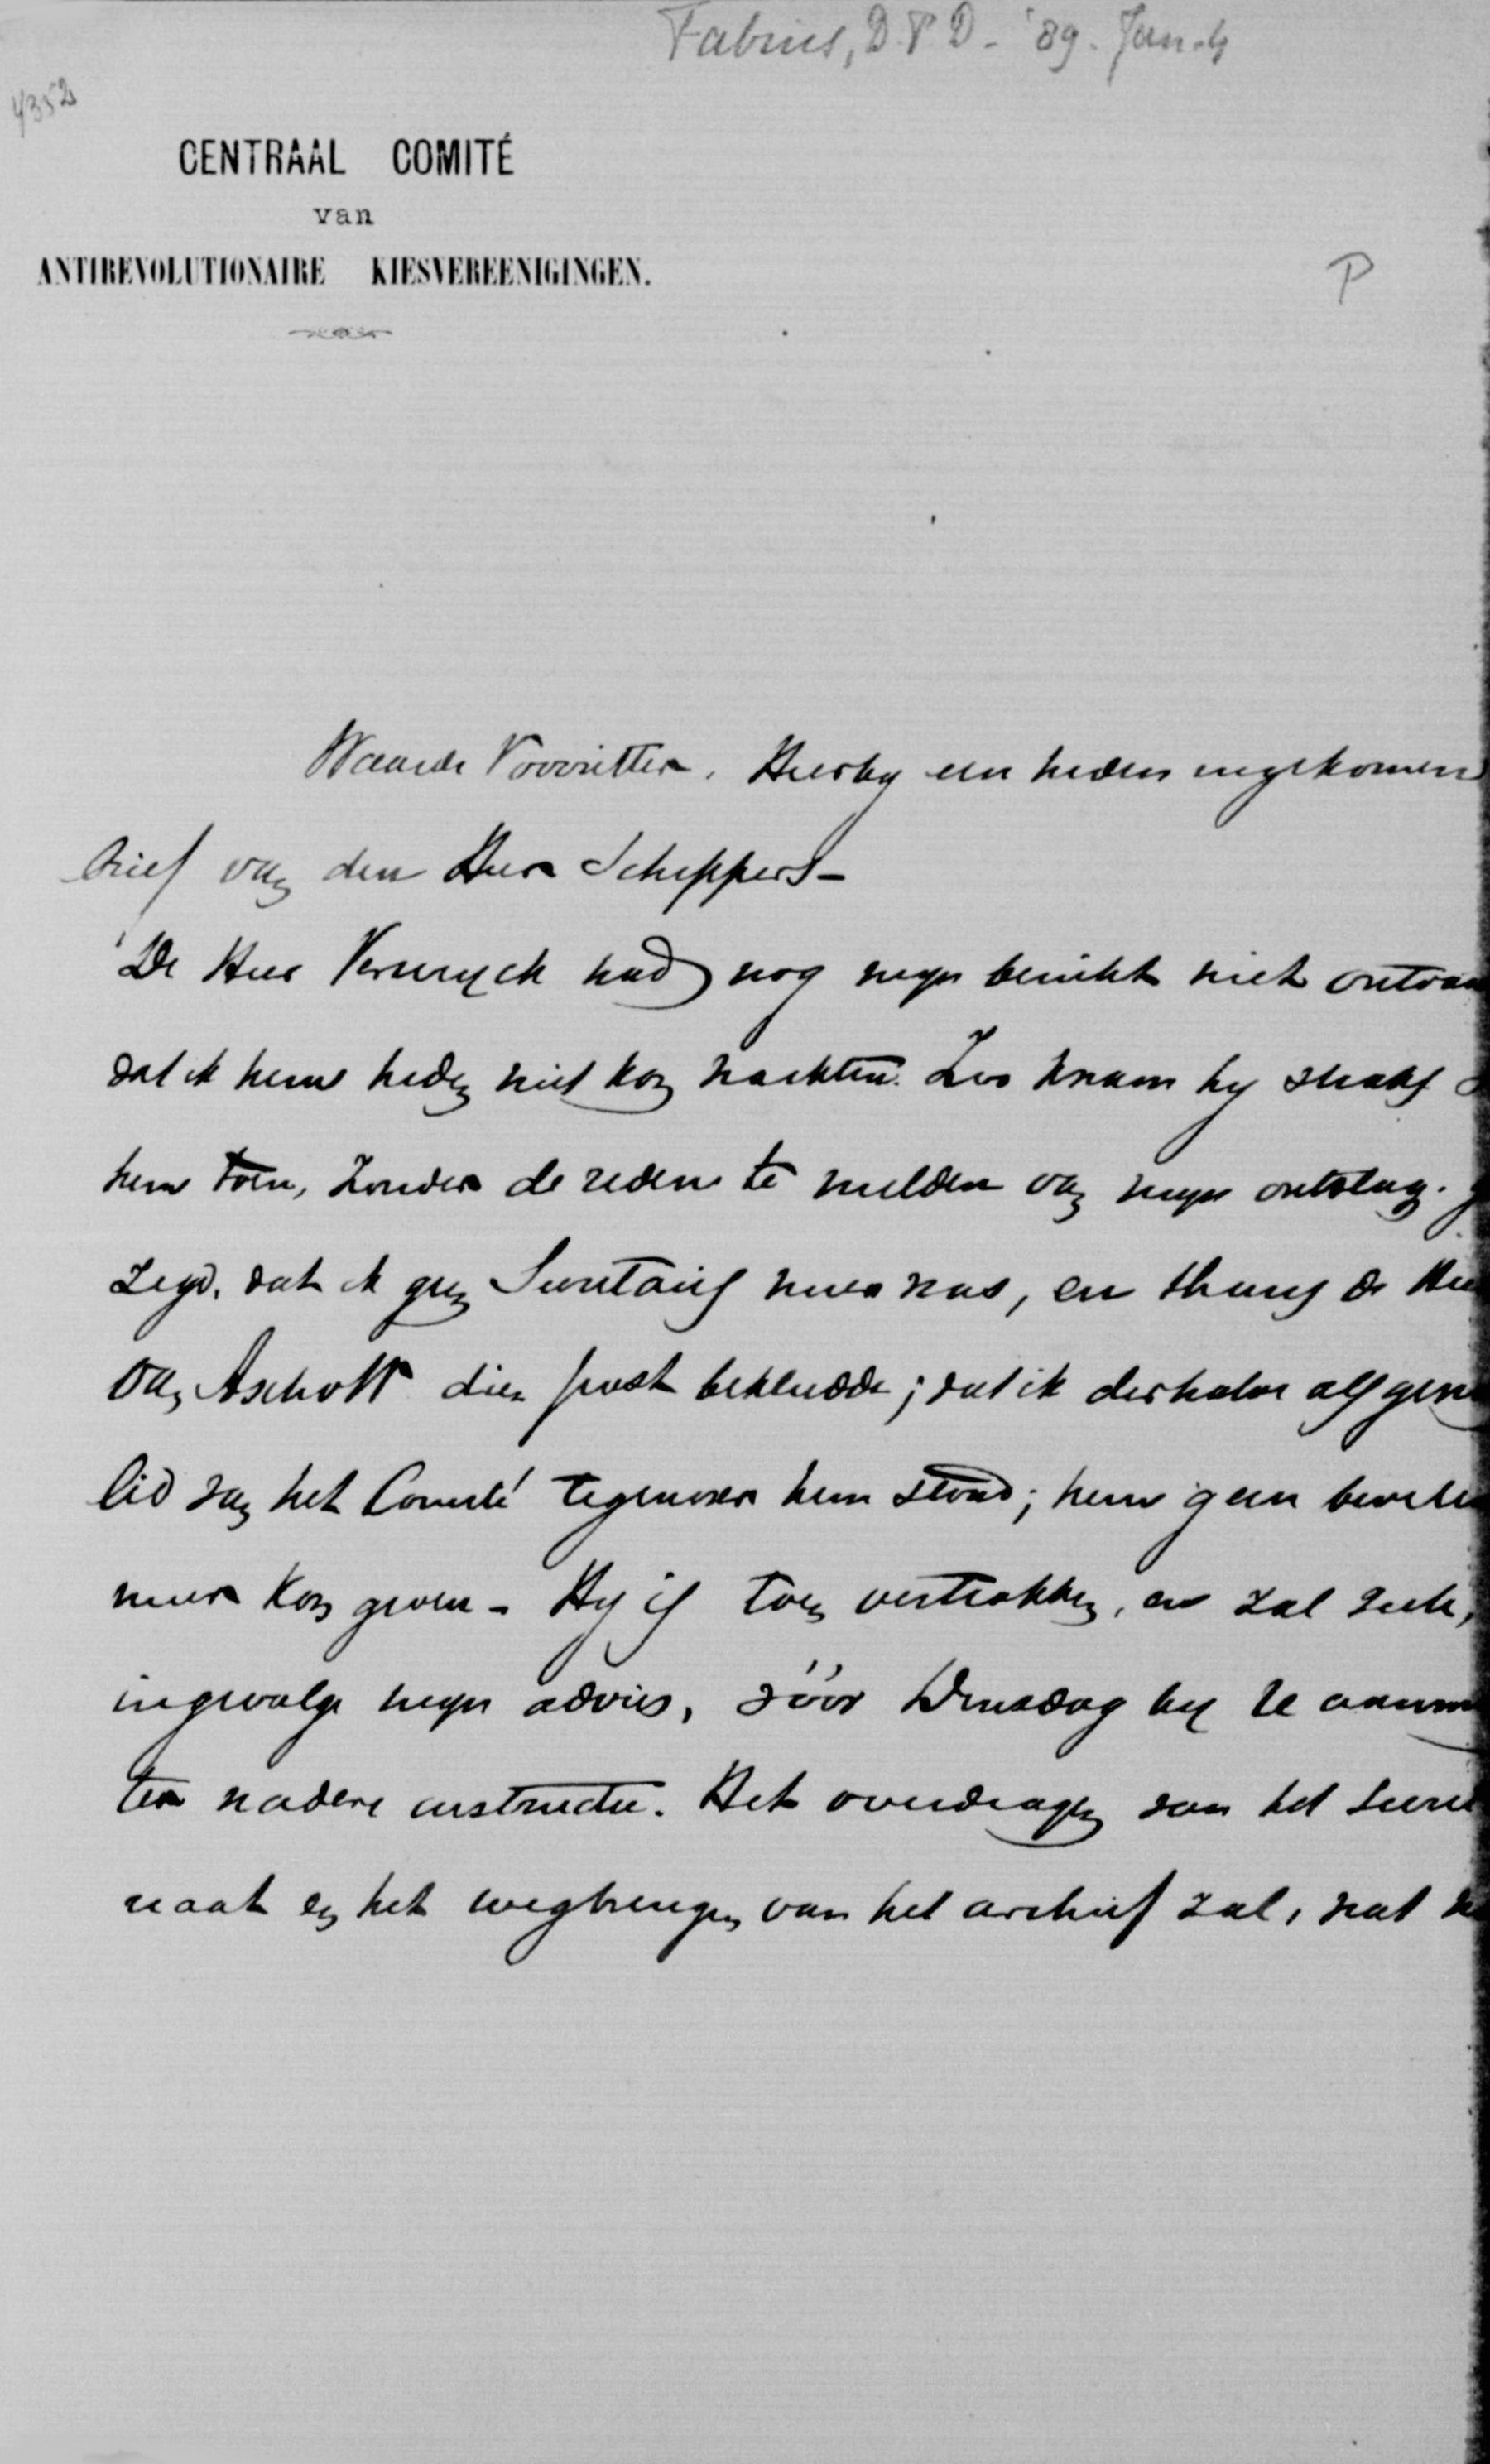 Fabius, D.P.D. - '89. Jan. 4
4352
CENTRAAL COMITÉ
van
ANTIREVOLUTIONAIRE KIESVEREENIGINGEN.
P
Waarde Voorzitter. Hierby een heden ingekomen
brief van den Heer Scheppers -
De Heer Verweyck had nog myn bericht niet ontvan
dat ik hem heden niet kon wachten. Zoo kwam hy straks
hem toen, zonder de reden te melden van myn ontslag. g
zegd, dat ik geen Secretaris meer was, en thans de Hee
van Asch v W die post bekleedde; dat ik derhalve als gewo
lid van het Comité tegenover hem stond; hem geen bevelen
meer kon geven - Hy is toen vertrokken, en zal zich,
ingevolge myn advies, vóór Dinsdag by U aanm
ter nadere instructie. Het overdragen van het Secret
riaat en het wegbrengen van het archief zal, wat